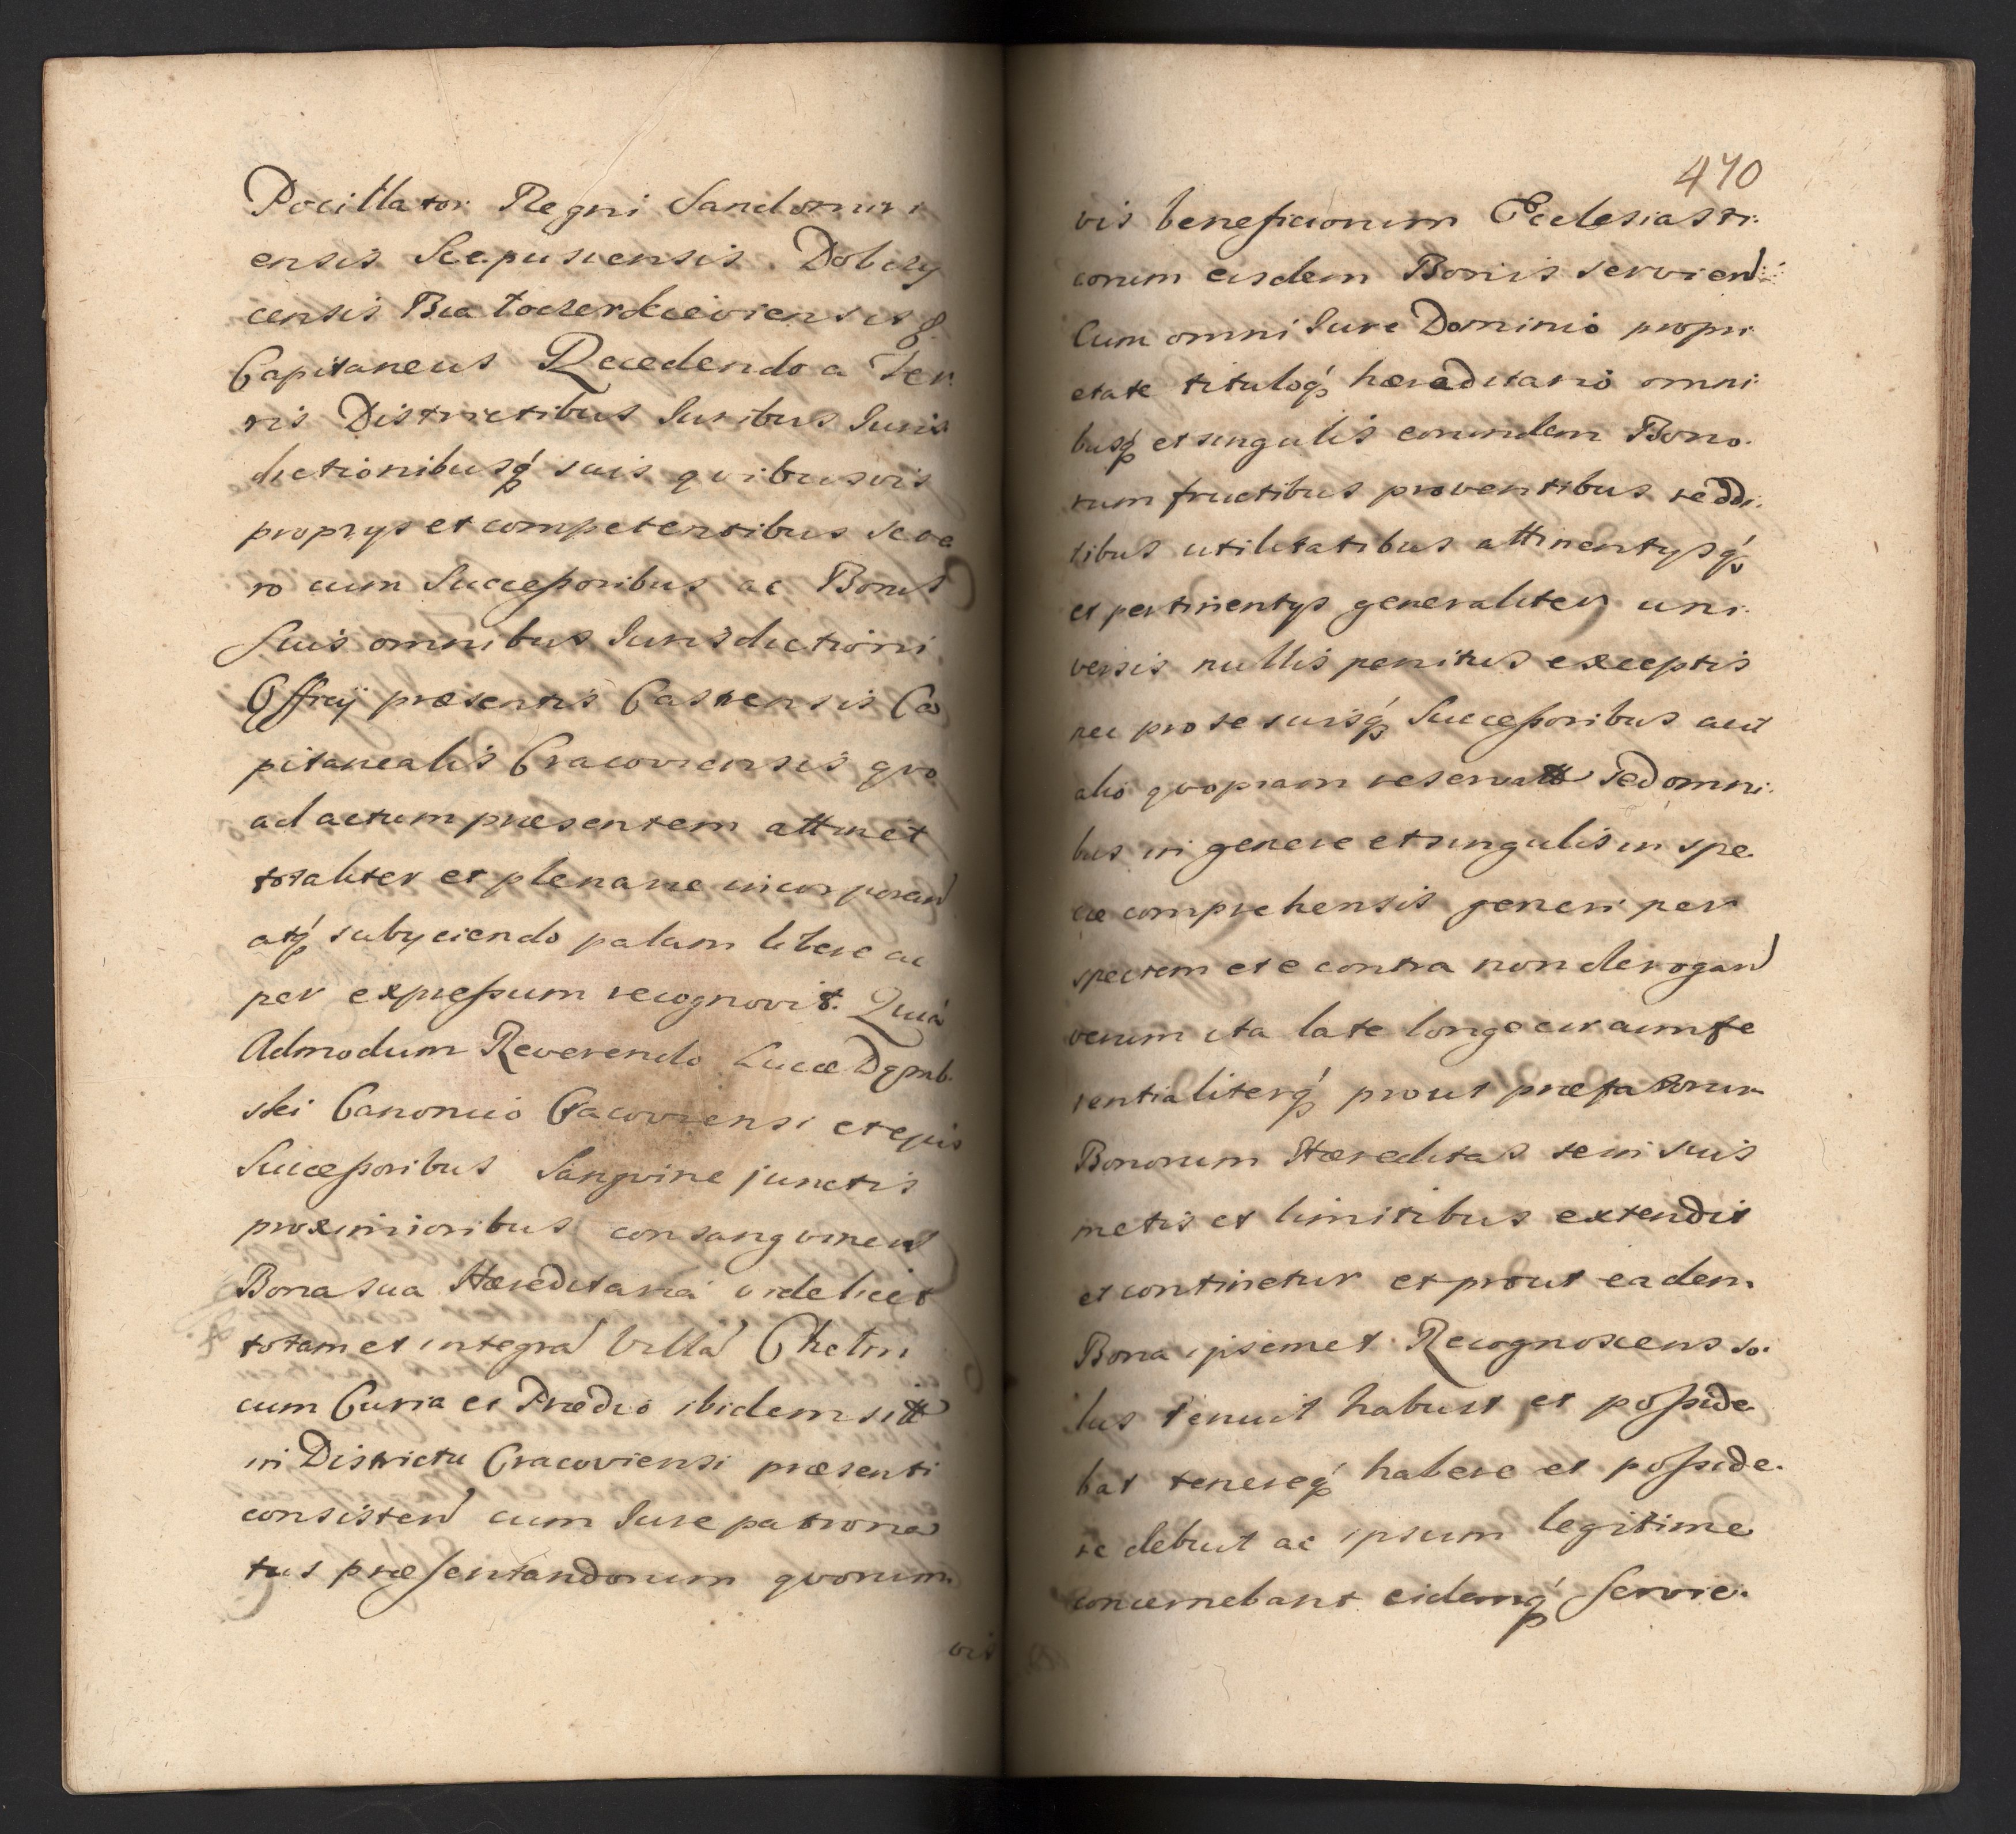 Pocillator Regni Sandomiri
ensis Scepusiensis Dobczy
censis Bia Capitaneus Recedendo a Ter
ris Districtibus Iuribus Iuris
dictionibusq́ suis quibusvis
proprys et competentibus seve
ro cum Succeßoribus ac Bonis
Suis omnibus Iurisdictioni
Officÿ præsentis Castrensis Ca
pitanealis Cracoviensis qvo
ad actum præsentem attinet
totaliter et plenarie incorporan
atq́ subyciendo palam libere ac
per expreßum recognovit. Quia
Admodum Reverendo Lucæ Dąmb
ski Canonico Cracoviensi et ejus
Succeßoribus Sangvine junctis
proximioribus consangvineis
Bona sua Hæreditaria videlicet
totam et integra Villa Chelm
cum Curia et Prædio ibidem sitt
in Districtu Cracoviensi præsenti
consisten cum Iure patrona
tus præsentandorum qvorum
vis
470
vis beneficiorum Ecclesiasti
corum eisdem Bonis servien:
Cum omni Iure Dominio propri
etate tituloq́ hæreditario omni
busq́ et singulis eorundem Bono
rum fructibus proventibus reddi
tibus utilitatibus attinentysq́
et pertinentys generaliter uni
versis nullis penitus exceptis
nec pro se suisq́ Succeßoribus aut
alio qvopiam reservatt sed omni
bus in genere et singulis in spe
cie comprehensis generi per
speciem et e contra non derogan
verum ita late longe circumfe
rentialiterq́ prout præfatorum
Bonorum Hæreditas semi suis
metis et limitibus extendit
et continetur et prout eadem
Bona ipsemet Recognoscens so
lus tenuit habuit et poßide
bat tenereq́ habere et poßide
re debuit ac ipsum legitime
concernebant eidemq́ servie